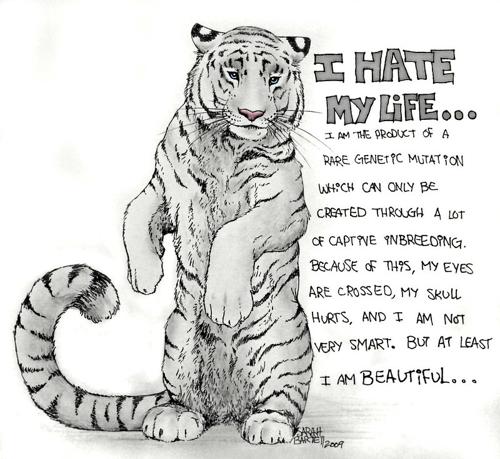 I HATE
MY LiFE...
I AM THE PRODUCT OF A
RARE GENETIC MUTATION
WHICH CAN ONLY BE
CREATED THROUGH A LOT
OF CAPTIVE iNBREEDiNG.
BECAUSE OF THIS, MY EYES
ARE CROSSED, MY SKULL
HURTS, AND I AM NOT
VERY SMART. BUT AT LEAST
I AM BEAUTiFUL...
SARAH
BARTELL
2009